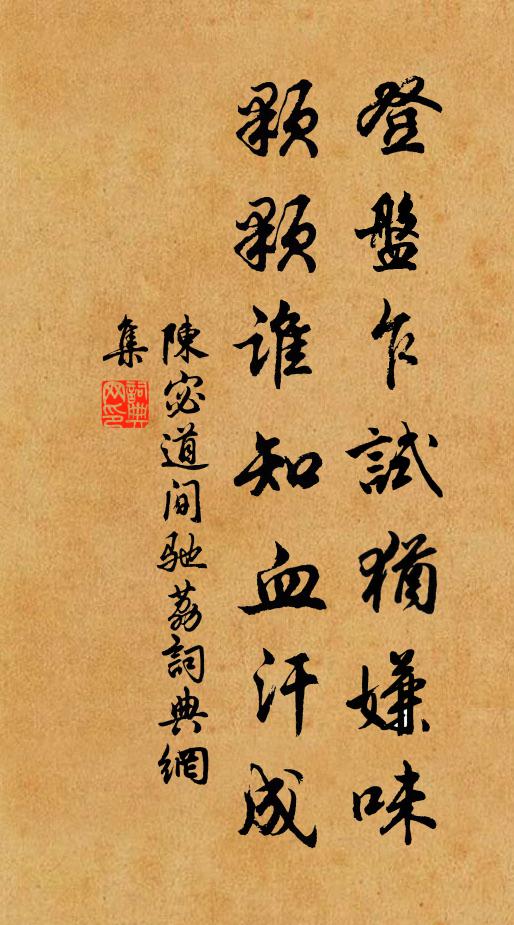 登盤乍試猶嫌味
顆顆誰知血汗成
陳宓道间馳荔詞典網
集
詞典
网印